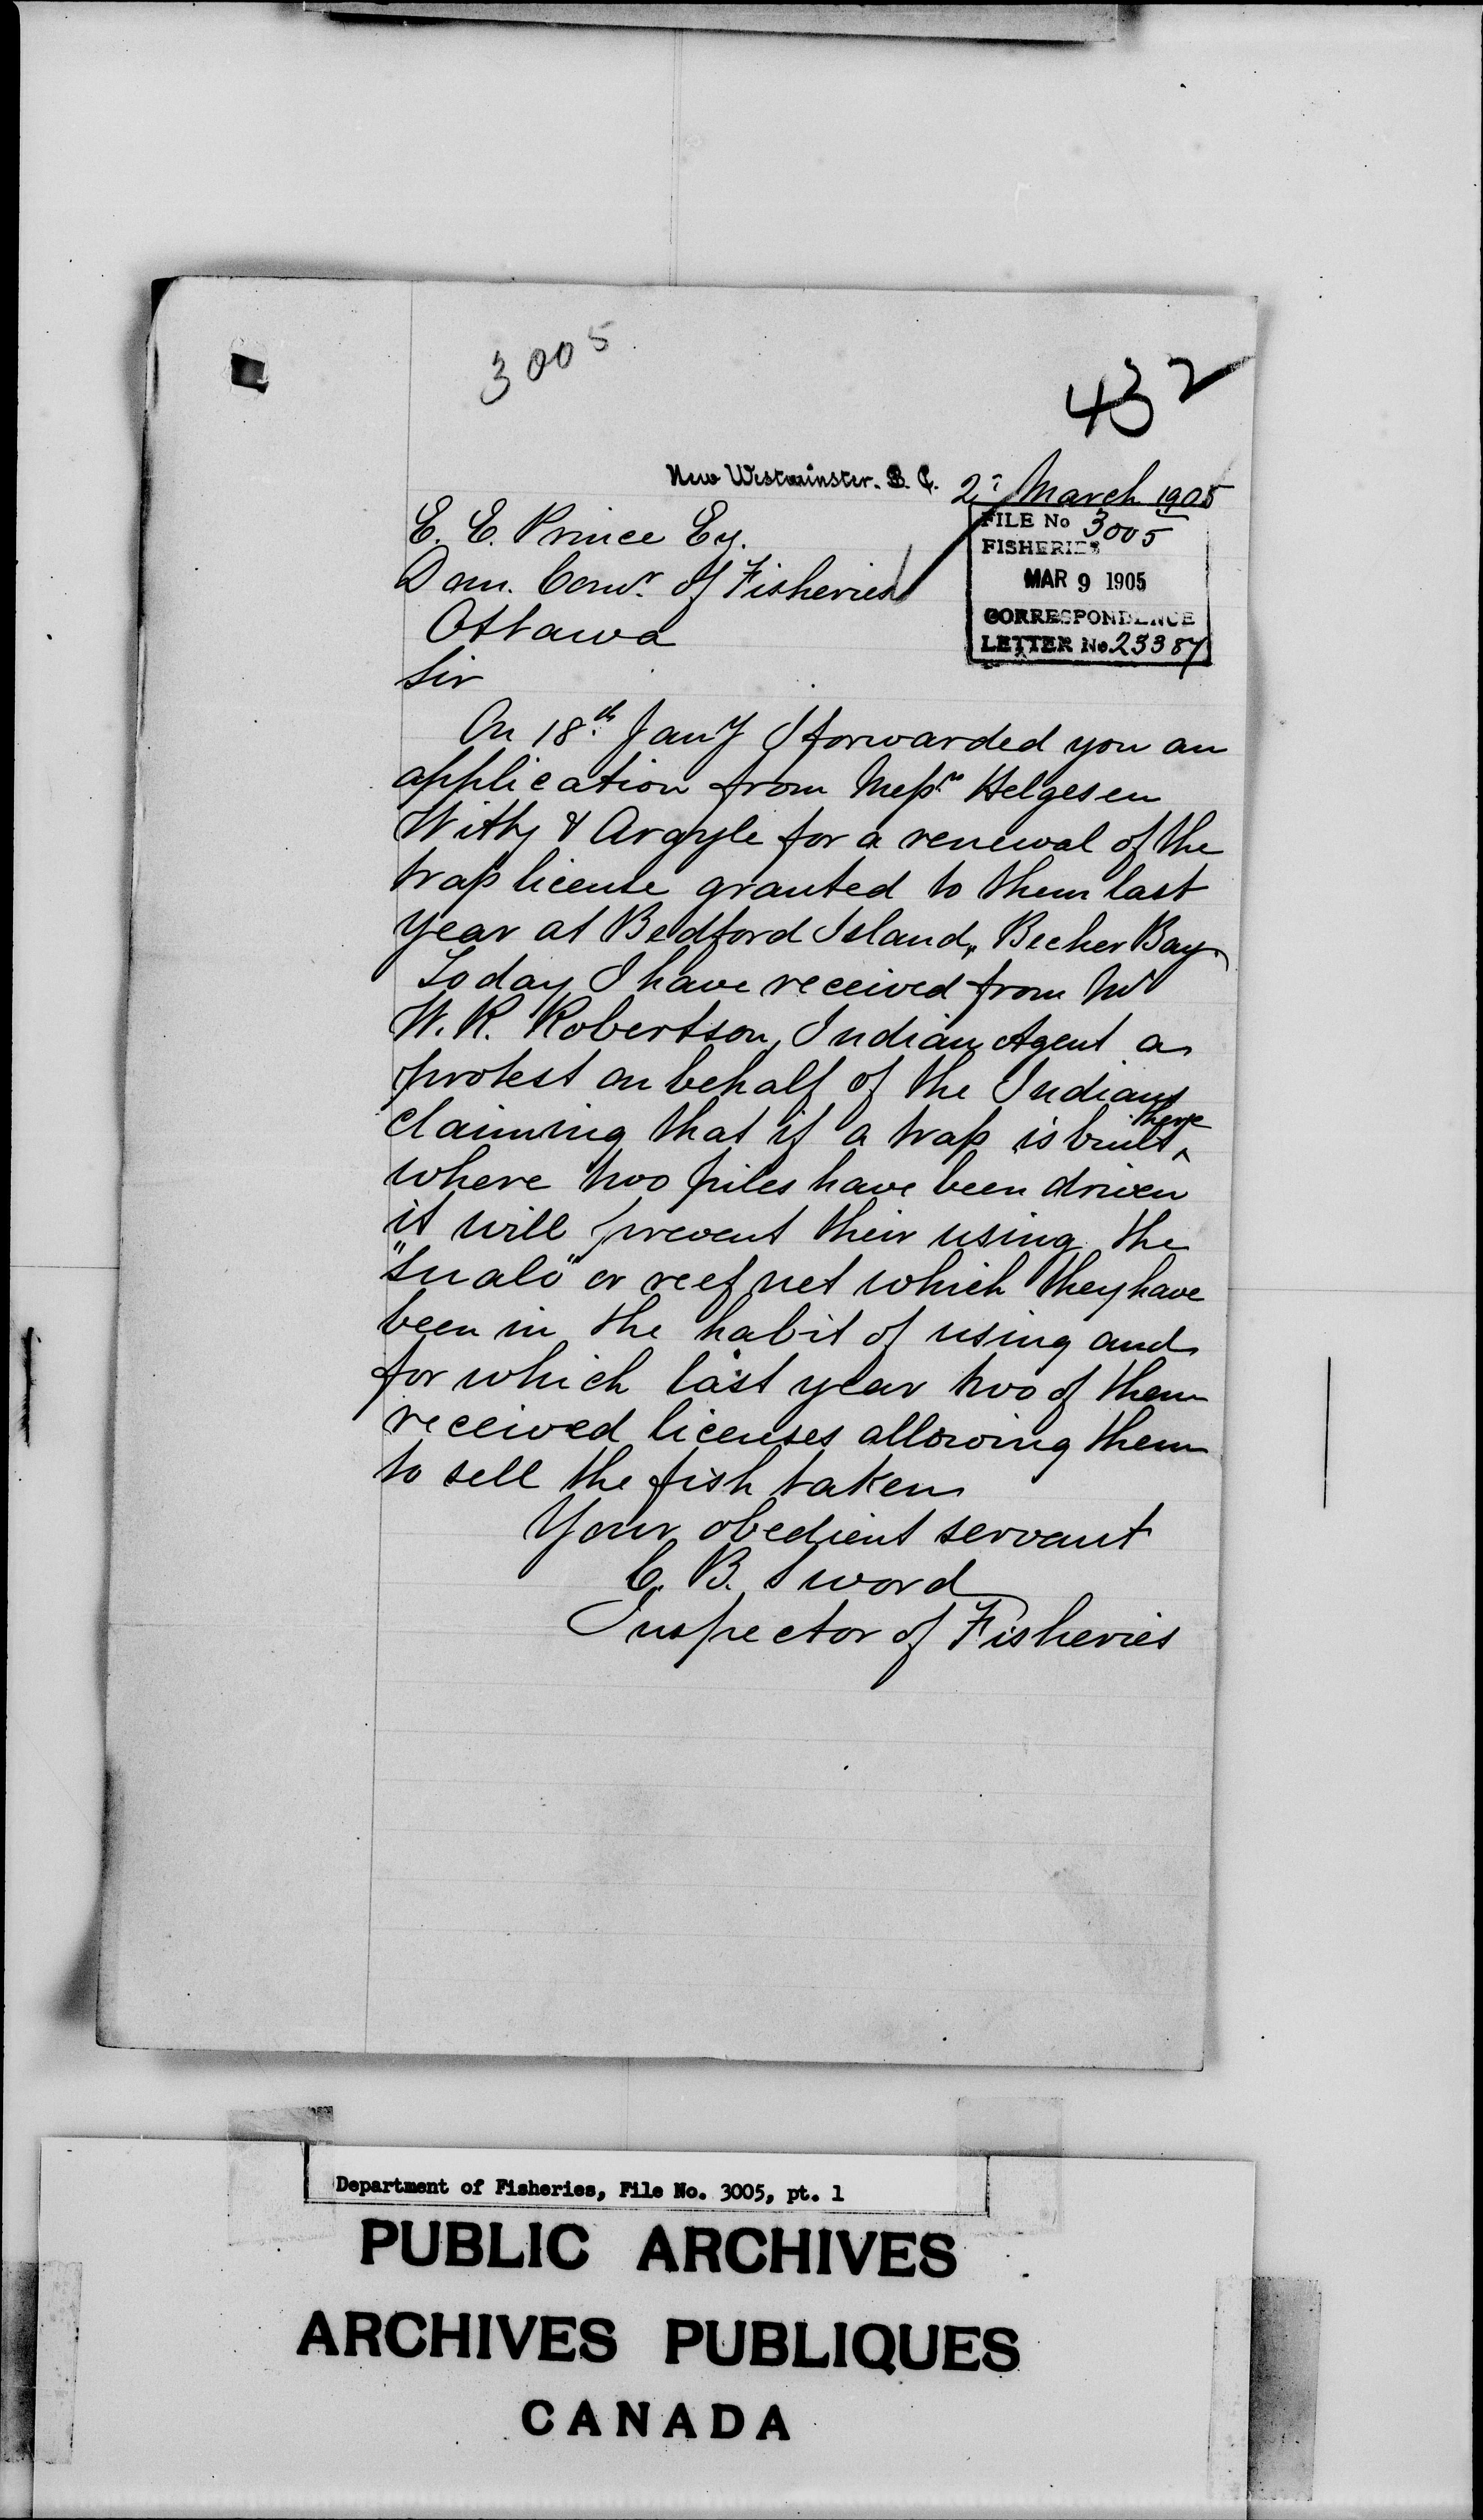 3005
432
New Westminster. B. C. 2d March 1905
FILE No 3005
FISHERIES
MAR 9 1905
CORRESPONDENCE
LETTER No. 23387
E. E. Prince Esq.
Dom. Comr. of Fisheries
Ottawa
Sir
On 18th Jany I forwarded you an
application from Messrs Helgesen
Witty & Argyle for a renewal of the
trap license granted to them last
year at Bedford Island, Becher Bay.
Today I have received from Mr
W. R. Robertson, Indian Agent a
protest on behalf of the Indians
claiming that if a trap is built there
where two piles have been driven
it will prevent their using the
"Sualo" or reef net which they have
been in the habit of using and
for which last year two of them
received licenses allowing them
to sell the fish taken
Your obedient servant
C. B. Sword
Inspector of Fisheries
Department of Fisheries, File No. 3005, pt. 1
PUBLIC ARCHIVES
ARCHIVES PUBLIQUES
CANADA